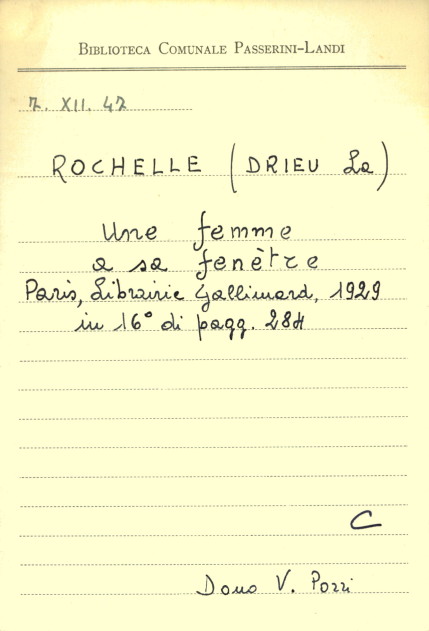 BIBLIOTECA COMUNALE PASSERINI-LANDI
7. XII. 47
ROCHELLE (DRIEU La)
Une femme
a sa fenètre
Paris, Librairie Gallimard, 1929
in 16° di pagg. 284
C
Dono V. Pozzi